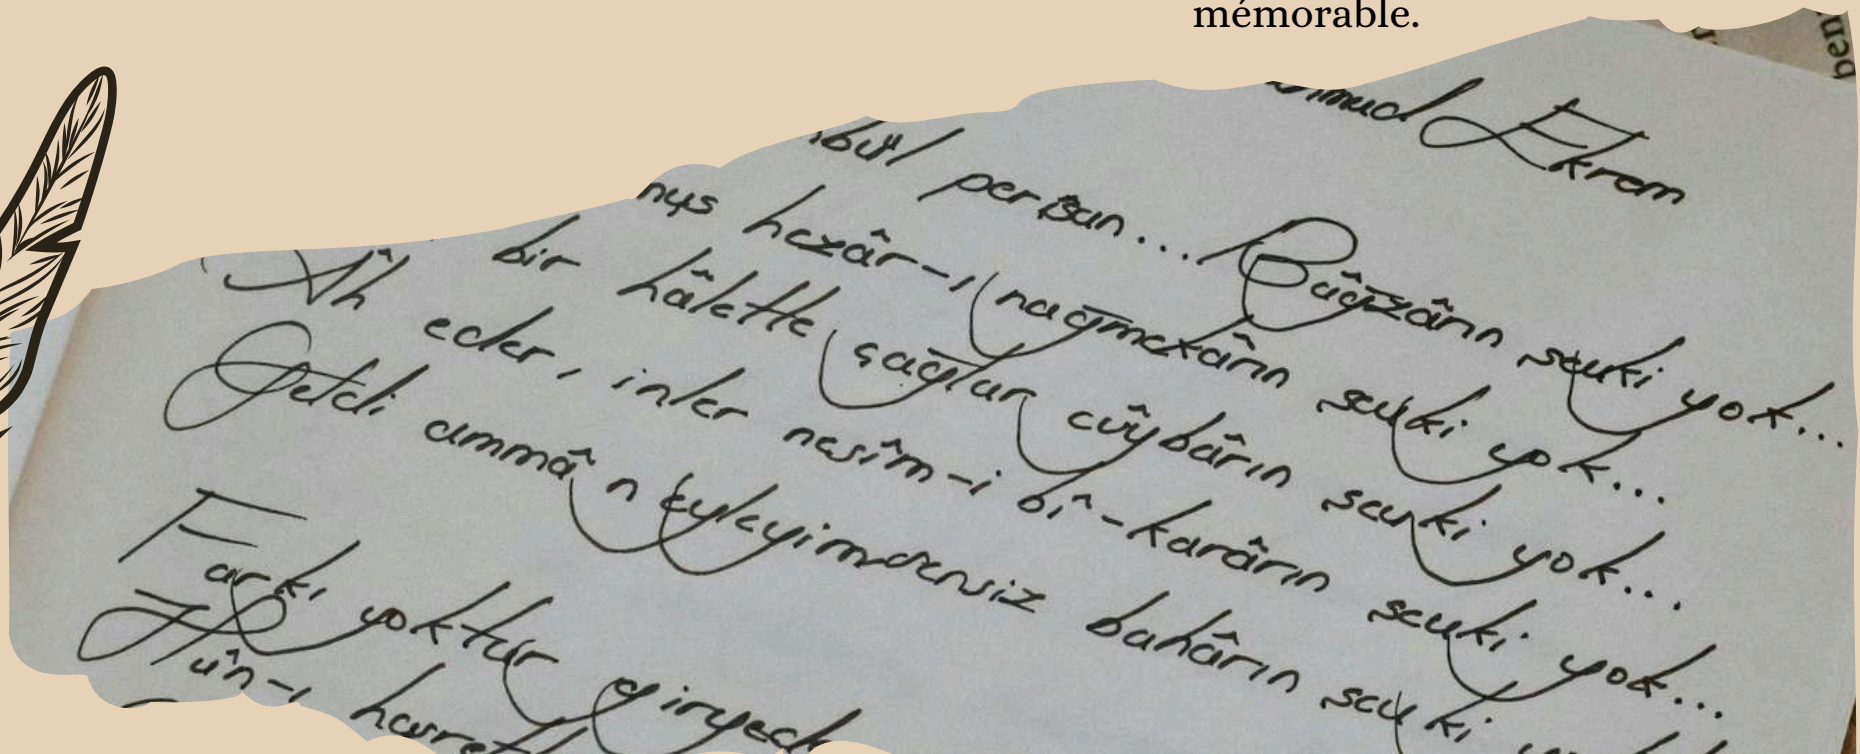 mémorable.
Ekrem
perişan... Bâğzârın şevki yok...
hezâr-ı nağmekârın şevki yok...
bir hâletle çağlar cûybârın şevki yok...
Âh eder, inler nesîm-i bî-karârın şevki yok...
Geldi ammâ n'eyleyim sensiz bahârın şevki
Farkı yoktur
Hûn-ı